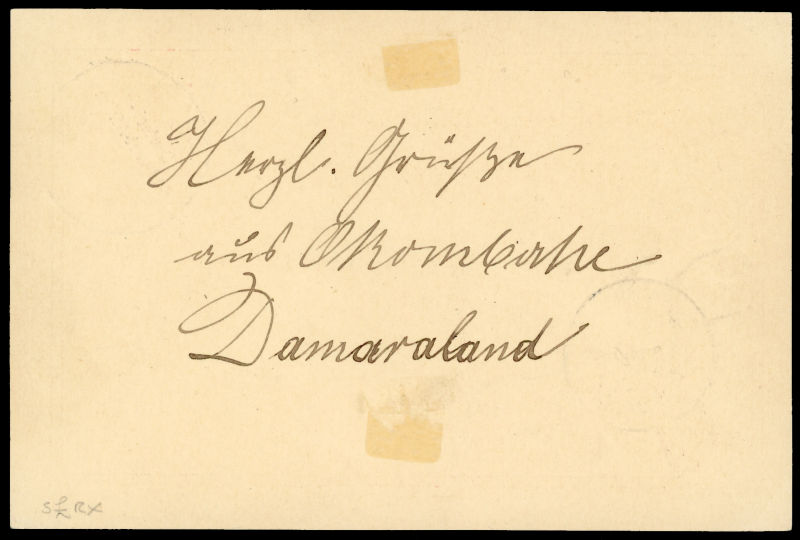 Herzl. Grüße
aus Okombahe
Damaraland